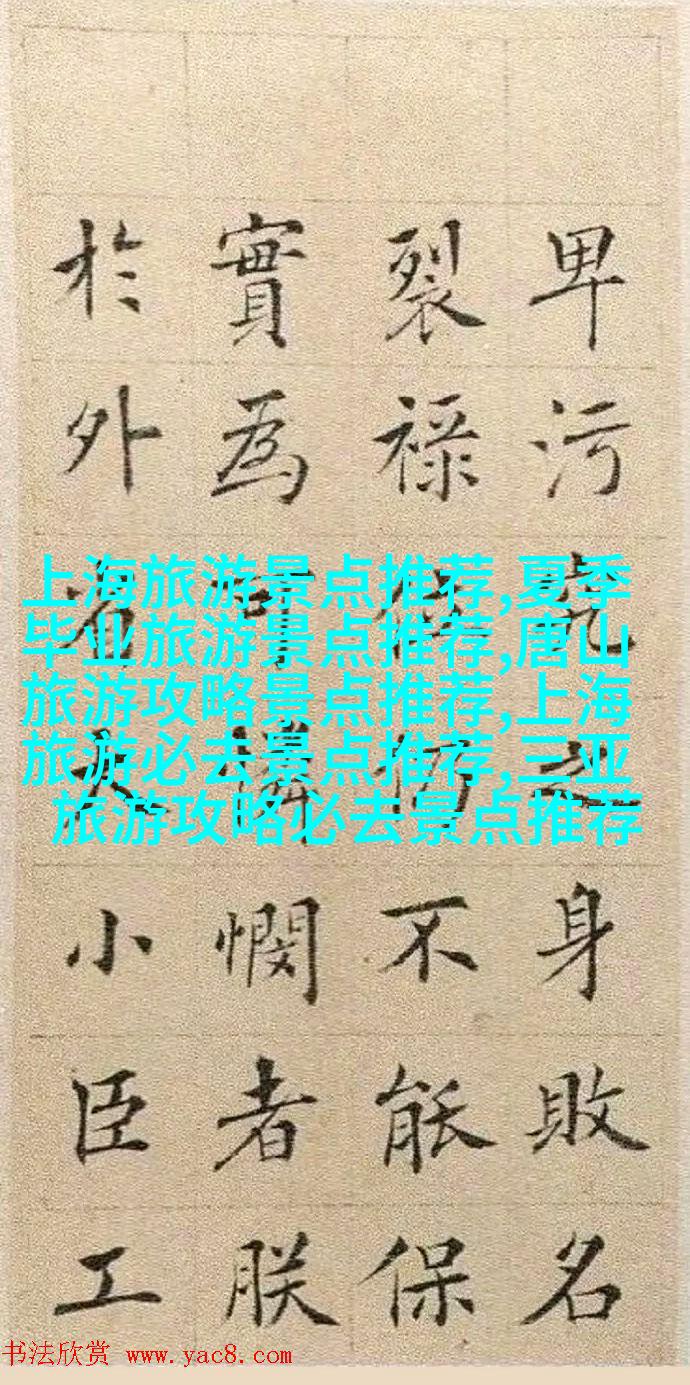 卑污之身敗名
裂祿位不能保
實為可憐憫者朕
於外省大小臣工
上海旅游景点推荐,夏季
毕业旅游景点推荐,唐山
旅游攻略景点推荐,上海
旅游必去景点推荐,三亚
旅游攻略必去景点推荐
书法欣赏 www.yac8.com